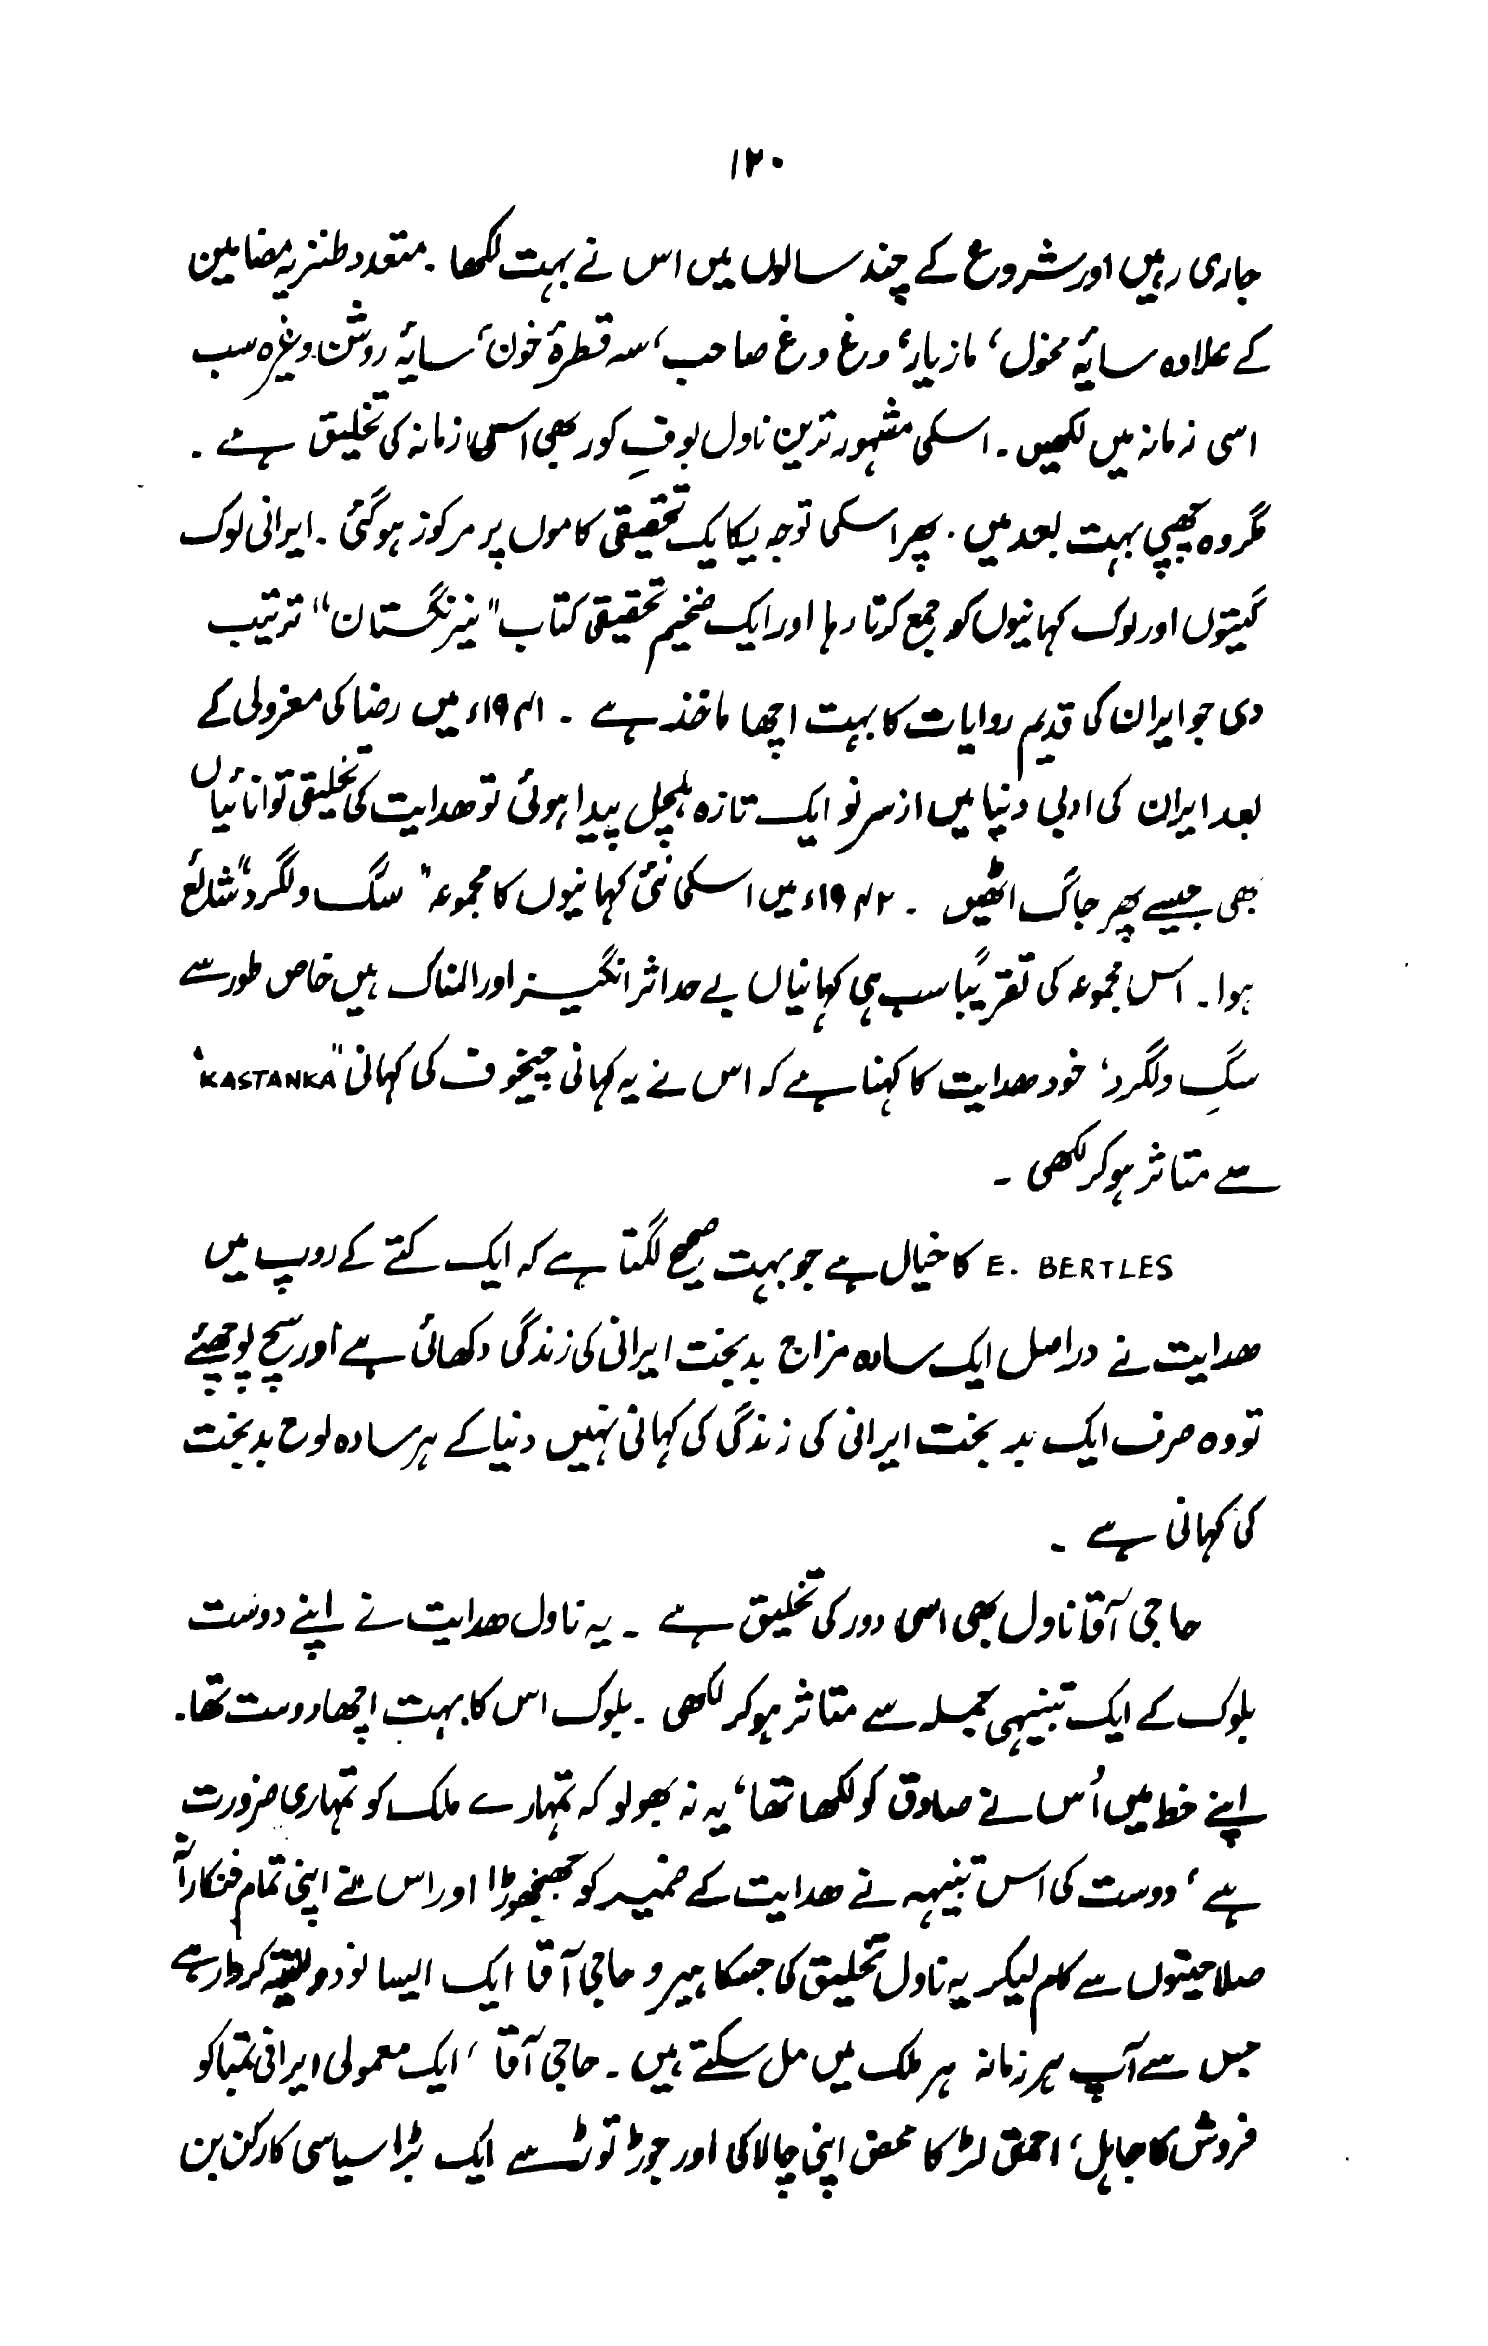 ۱۲۰
جاری رہیں اور شروع کے چند سالوں میں اس نے بہت لکھا ۔ متعدد طنزیہ مضامین
کے علاوہ سایۂ مغول، مازیار، وغ وغ صاحب، سہ قطرۂ خون، سایۂ روشن وغیرہ سب
اسی زمانہ میں لکھیں ۔ اسکی مشہور ترین ناول بوفِ کور بھی اسی زمانہ کی تخلیق ہے ۔
مگر وہ چھپی بہت بعد میں ۔ پھر اسکی توجہ یکایک تحقیقی کاموں پر مرکوز ہوگئی ۔ ایرانی لوک
گیتوں اور لوک کہانیوں کو جمع کرتا رہا اور ایک ضخیم تحقیقی کتاب "نیرنگستان" ترتیب
دی جو ایران کی قدیم روایات کا بہت اچھا ماخذ ہے ۔ ۱۹۴۱ء میں رضا کی معزولی کے
بعد ایران کی ادبی دنیا میں از سر نو ایک تازہ ہلچل پیدا ہوئی تو ھدایت کی تخلیقی توانائیاں
بھی جیسے پھر جاگ اٹھیں ۔ ۱۹۴۲ء میں اسکی نئی کہانیوں کا مجموعہ "سگ ولگرد" شائع
ہوا ۔ اس مجموعہ کی تقریباً سب ہی کہانیاں بے حد اثر انگیز اور المناک ہیں خاص طور سے
سگِ ولگرد، خود ھدایت کا کہنا ہے کہ اس نے یہ کہانی چیخوف کی کہانی "KASTANKA"
سے متاثر ہوکر لکھی ۔
E. BERTLES کا خیال ہے جو بہت صحیح لگتا ہے کہ ایک کتے کے روپ میں
ھدایت نے دراصل ایک سادہ مزاج بدبخت ایرانی کی زندگی دکھائی ہے اور سچ پوچھئے
تو وہ صرف ایک بد بخت ایرانی کی زندگی کی کہانی نہیں دنیا کے ہر سادہ لوح بدبخت
کی کہانی ہے ۔
حاجی آقا ناول بھی اسی دور کی تخلیق ہے ۔ یہ ناول ھدایت نے اپنے دوست
بلوک کے ایک تنبیہی جملہ سے متاثر ہوکر لکھی ۔ بلوک اس کا بہت اچھا دوست تھا ۔
اپنے خط میں اُس نے صادق کو لکھا تھا، یہ نہ بھولو کہ تمہارے ملک کو تمہاری ضرورت
ہے، دوست کی اس تنبیہہ نے ھدایت کے ضمیر کو جھنجھوڑا اور اس نے اپنی تمام فنکارانہ
صلاحیتوں سے کام لیکر یہ ناول تخلیق کی جسکا ہیرو حاجی آقا ایک ایسا نودولتیہ کردار ہے
جس سے آپ ہر زمانہ ہر ملک میں مل سکتے ہیں ۔ حاجی آقا، ایک معمولی ایرانی تمباکو
فروش کا جاہل، احمق لڑکا محض اپنی چالاکی اور جوڑ توڑ سے ایک بڑا سیاسی کارکن بن